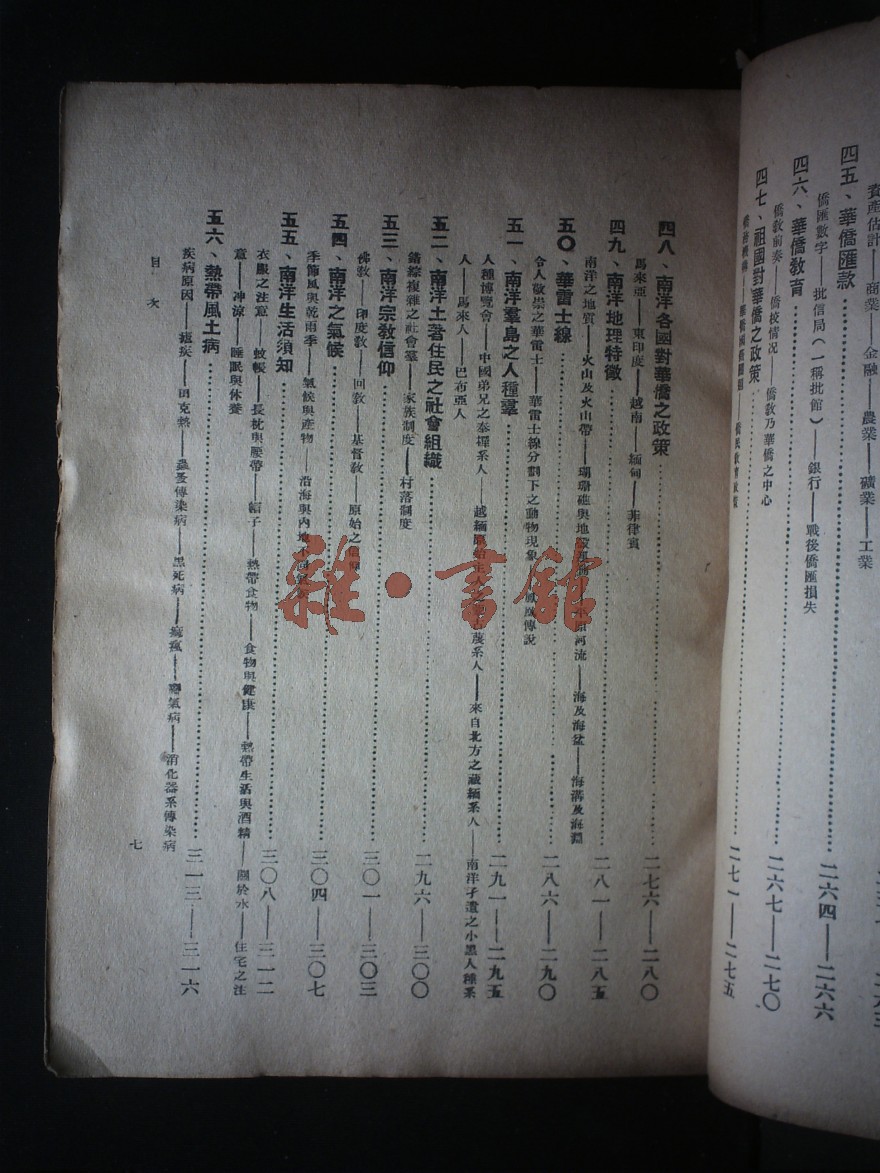 資產估計——商業——金融——農業——礦業——工業
四五、華僑匯款
二六四——二六六
僑匯數字——批信局(一稱批館)——銀行——戰後僑匯損失
四六、華僑教育
二六七——二七〇
僑教前奏——僑校情况——僑教乃華僑之中心
四七、祖國對華僑之政策
二七一——二七五
四八、南洋各國對華僑之政策
二七六——二八〇
馬來亞——東印度——越南——緬甸——菲律賓
四九、南洋地理特徵
二八一——二八五
南洋之地質——火山及火山帶——珊瑚礁與地殼運動——河流——海及海盆——海溝及海淵
五〇、華雷士線
二八六——二九〇
令人敬崇之華雷士——華雷士線分劃下之動物現象——傳說
五一、南洋羣島之人種羣
二九一——二九五
人種博覽會——中國弟兄之泰撣系人——越緬原始主人之蔑系人——來自北方之藏緬系人——南洋孑遺之小黑人種系
人——馬來人——巴布亞人
五二、南洋土著住民之社會組織
二九六——三〇〇
錯綜複雜之社會羣——家族制度——村落制度
五三、南洋宗教信仰
三〇一——三〇三
佛敎——印度敎——回敎——基督敎——原始之信仰
五四、南洋之氣候
三〇四——三〇七
季節風與乾雨季——氣候與產物——沿海與內地不同氣候
五五、南洋生活須知
三〇八——三一二
衣服之注意——蚊帳——長枕與腰帶——帽子——熱帶食物——食物與健康——熱帶生活與酒精——關於水——住宅之注
意——冲涼——睡眠與休養
五六、熱帶風土病
三一三——三一六
疾病原因——瘧疾——田克熱——蟲蚤傳染病——黑死病——痲瘋——脚氣病——消化器系傳染病
目次
七
雜·書館